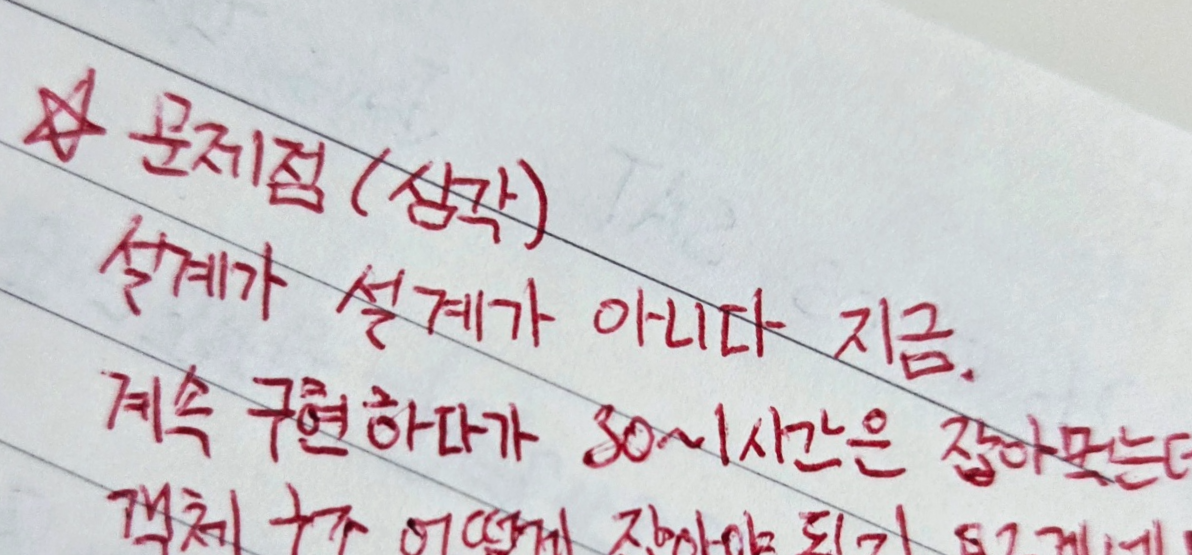 ☆ 문제점 (심각)
설계가 설계가 아니다 지금.
계속 구현하다가 30~1시간은 잡아먹는다
객체 구조 어떻게 잡아야 되기